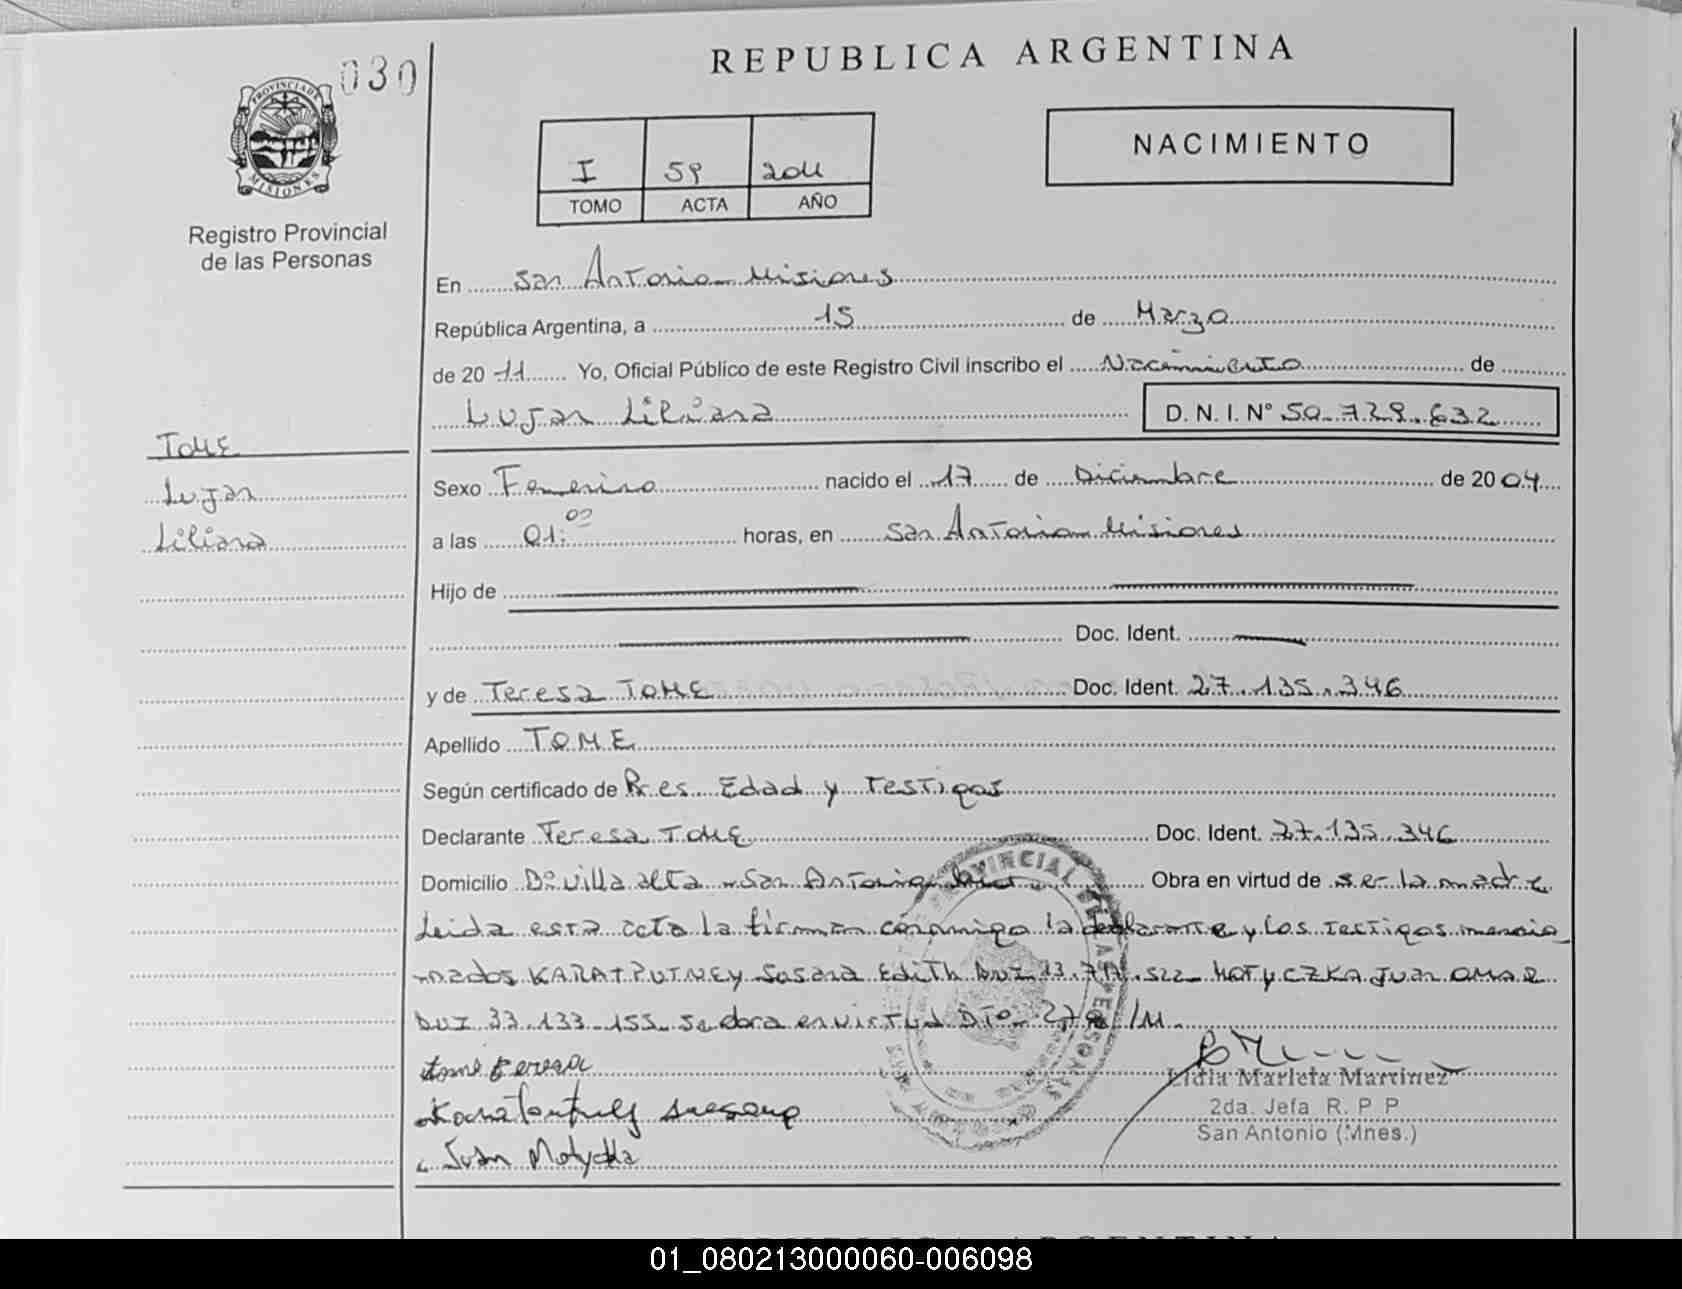 030
REPUBLICA ARGENTINA
PROVINCIA DE
MISIONES
Registro Provincial
de las Personas
I 59 2011
TOMO ACTA AÑO
NACIMIENTO
En San Antonio Misiones
República Argentina, a 15 de Marzo
de 20 11 Yo, Oficial Público de este Registro Civil inscribo el Nacimiento de
Lujan Liliana D. N. I. N° 50.729.632
TOME
Lujan
Liliana
Sexo Femenino nacido el 17 de Diciembre de 2004
a las 01:00 horas, en San Antonio Misiones
Hijo de
Doc. Ident.
y de Teresa TOME Doc. Ident. 27.135.346
Apellido TOME
Según certificado de Pres. Edad y Testigos
Declarante Teresa TOME Doc. Ident. 27.135.346
Domicilio B° Villa alta - San Antonio Obra en virtud de ser la madre
Leida esta acta la firman conmigo la declarante y los testigos mencio
nados KARATPUTNEY Susana Edith DNI MATYCZKA Juan OMAR
DNI 33.133.155 Se obra en virtud Dto 278/11.
tome teresa
Juan Motyczka
Lidia Marleta Martinez
2da. Jefa R. P. P
San Antonio (Mnes.)
REPUBLICA ARGENTINA
01_080213000060-006098